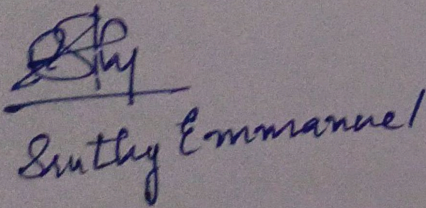 Sruthy Emmanuel